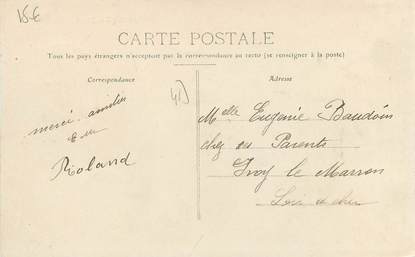 15€
CARTE POSTALE
Tous les pays étrangers n'acceptent pas la correspondance au recto (se renseigner à la poste)
Correspondance
Adresse
41)
merci amitiés
Roland
Melle Eugénie Baudoin
chez ses Parents
Ivoy le Marron
Loir et cher